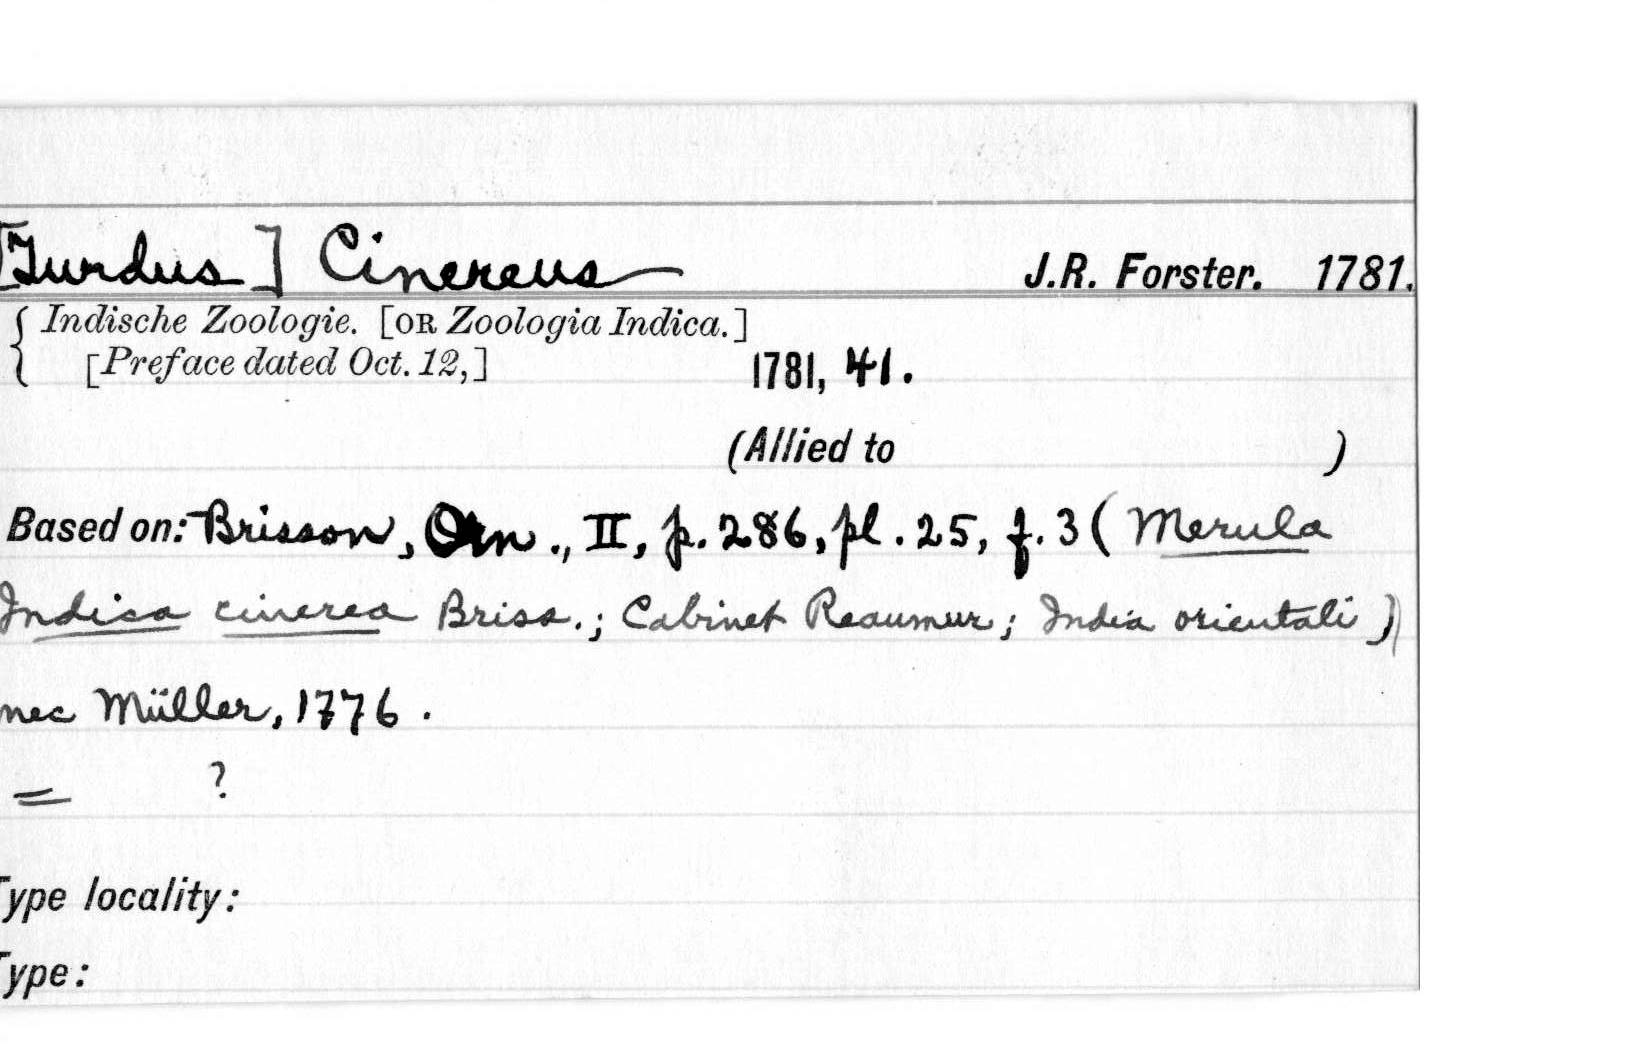 [Turdus] Cinereus J.R. Forster. 1781.
{ Indische Zoologie. [OR Zoologia Indica.]
[Preface dated Oct. 12,] 1781, 41.
(Allied to )
Based on: Brisson, Orn., II, p. 286, pl. 25, f. 3 (Merula
Indica cinerea Briss.; Cabinet Reaumur; India orientali)
nec Müller, 1776.
= ?
Type locality:
Type: